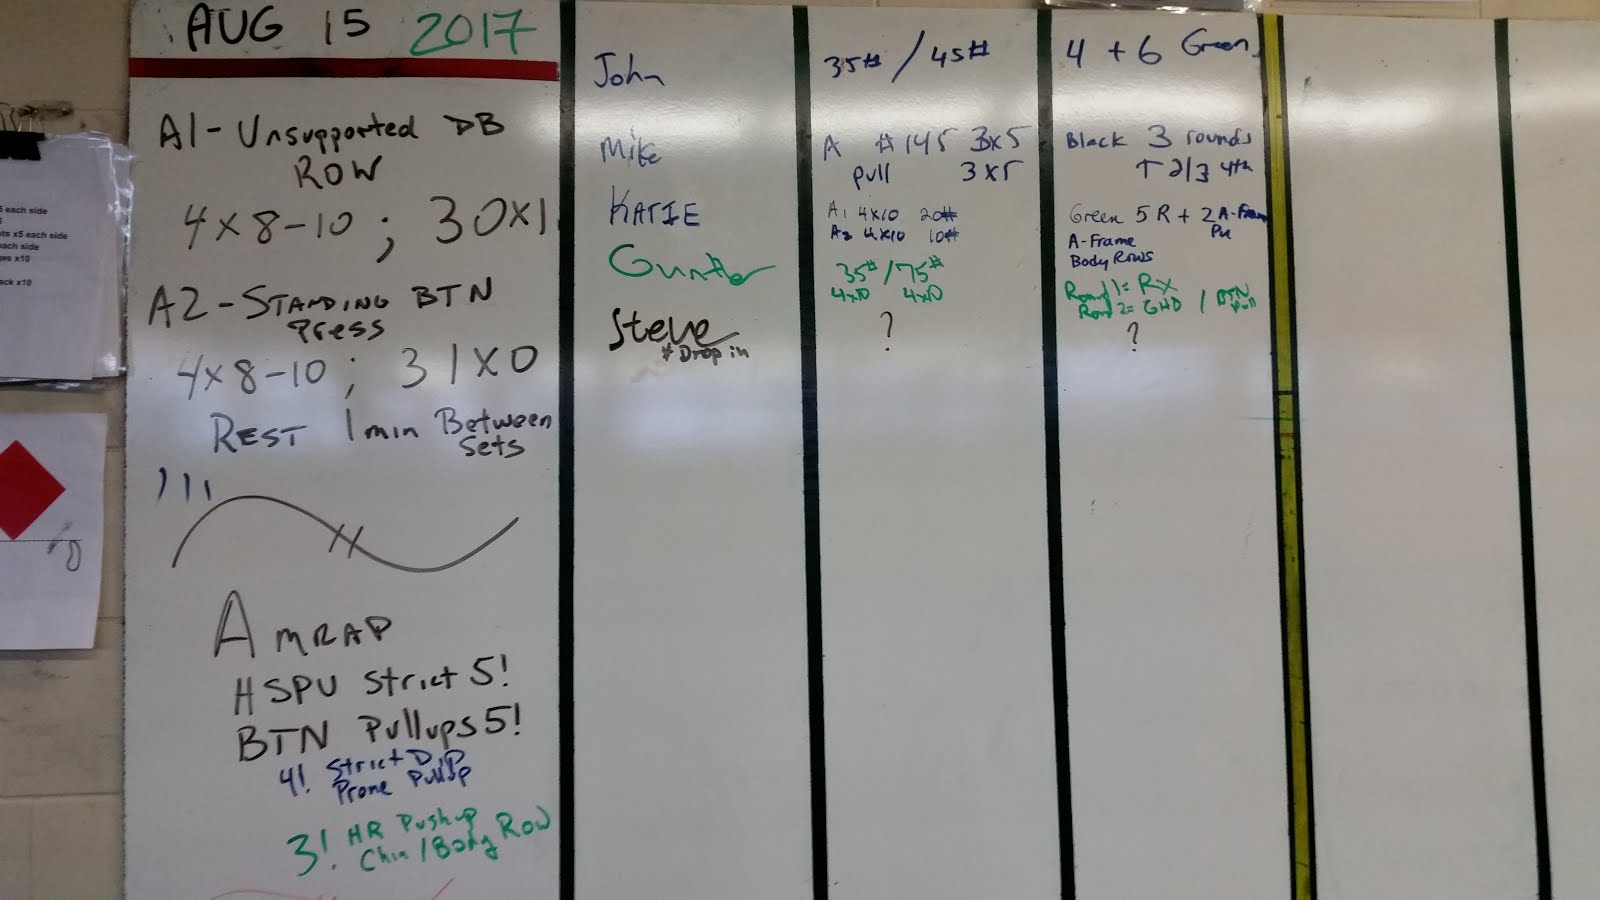 AUG 15 2017
A1-Unsupported DB
ROW
4x8-10 ; 30x1
A2-STANDING BTN
Press
4x8-10 ; 31x0
REST 1min Between
Sets
AMRAP
HSPU Strict 5!
BTN Pullups 5!
4! Strict DIP
Prone Pullup
3! HR Pushup
Chin/Body Row
John 35#/45# 4 + 6 Green
Mike A #145 3x5 Black 3 rounds
pull 3x5 ↑ 2/3 4th
KATIE A1 4x10 20# Green 5 R + 2 A-Frame
A2 4x10 10# A-Frame Pu
Body Rows
35#/75# Round 1= RX
4x10 4x10 Round 2= GHD / BTN Pull
Steve ? ?
* Drop in
5 each side
x5 each side
each side
x10
x10